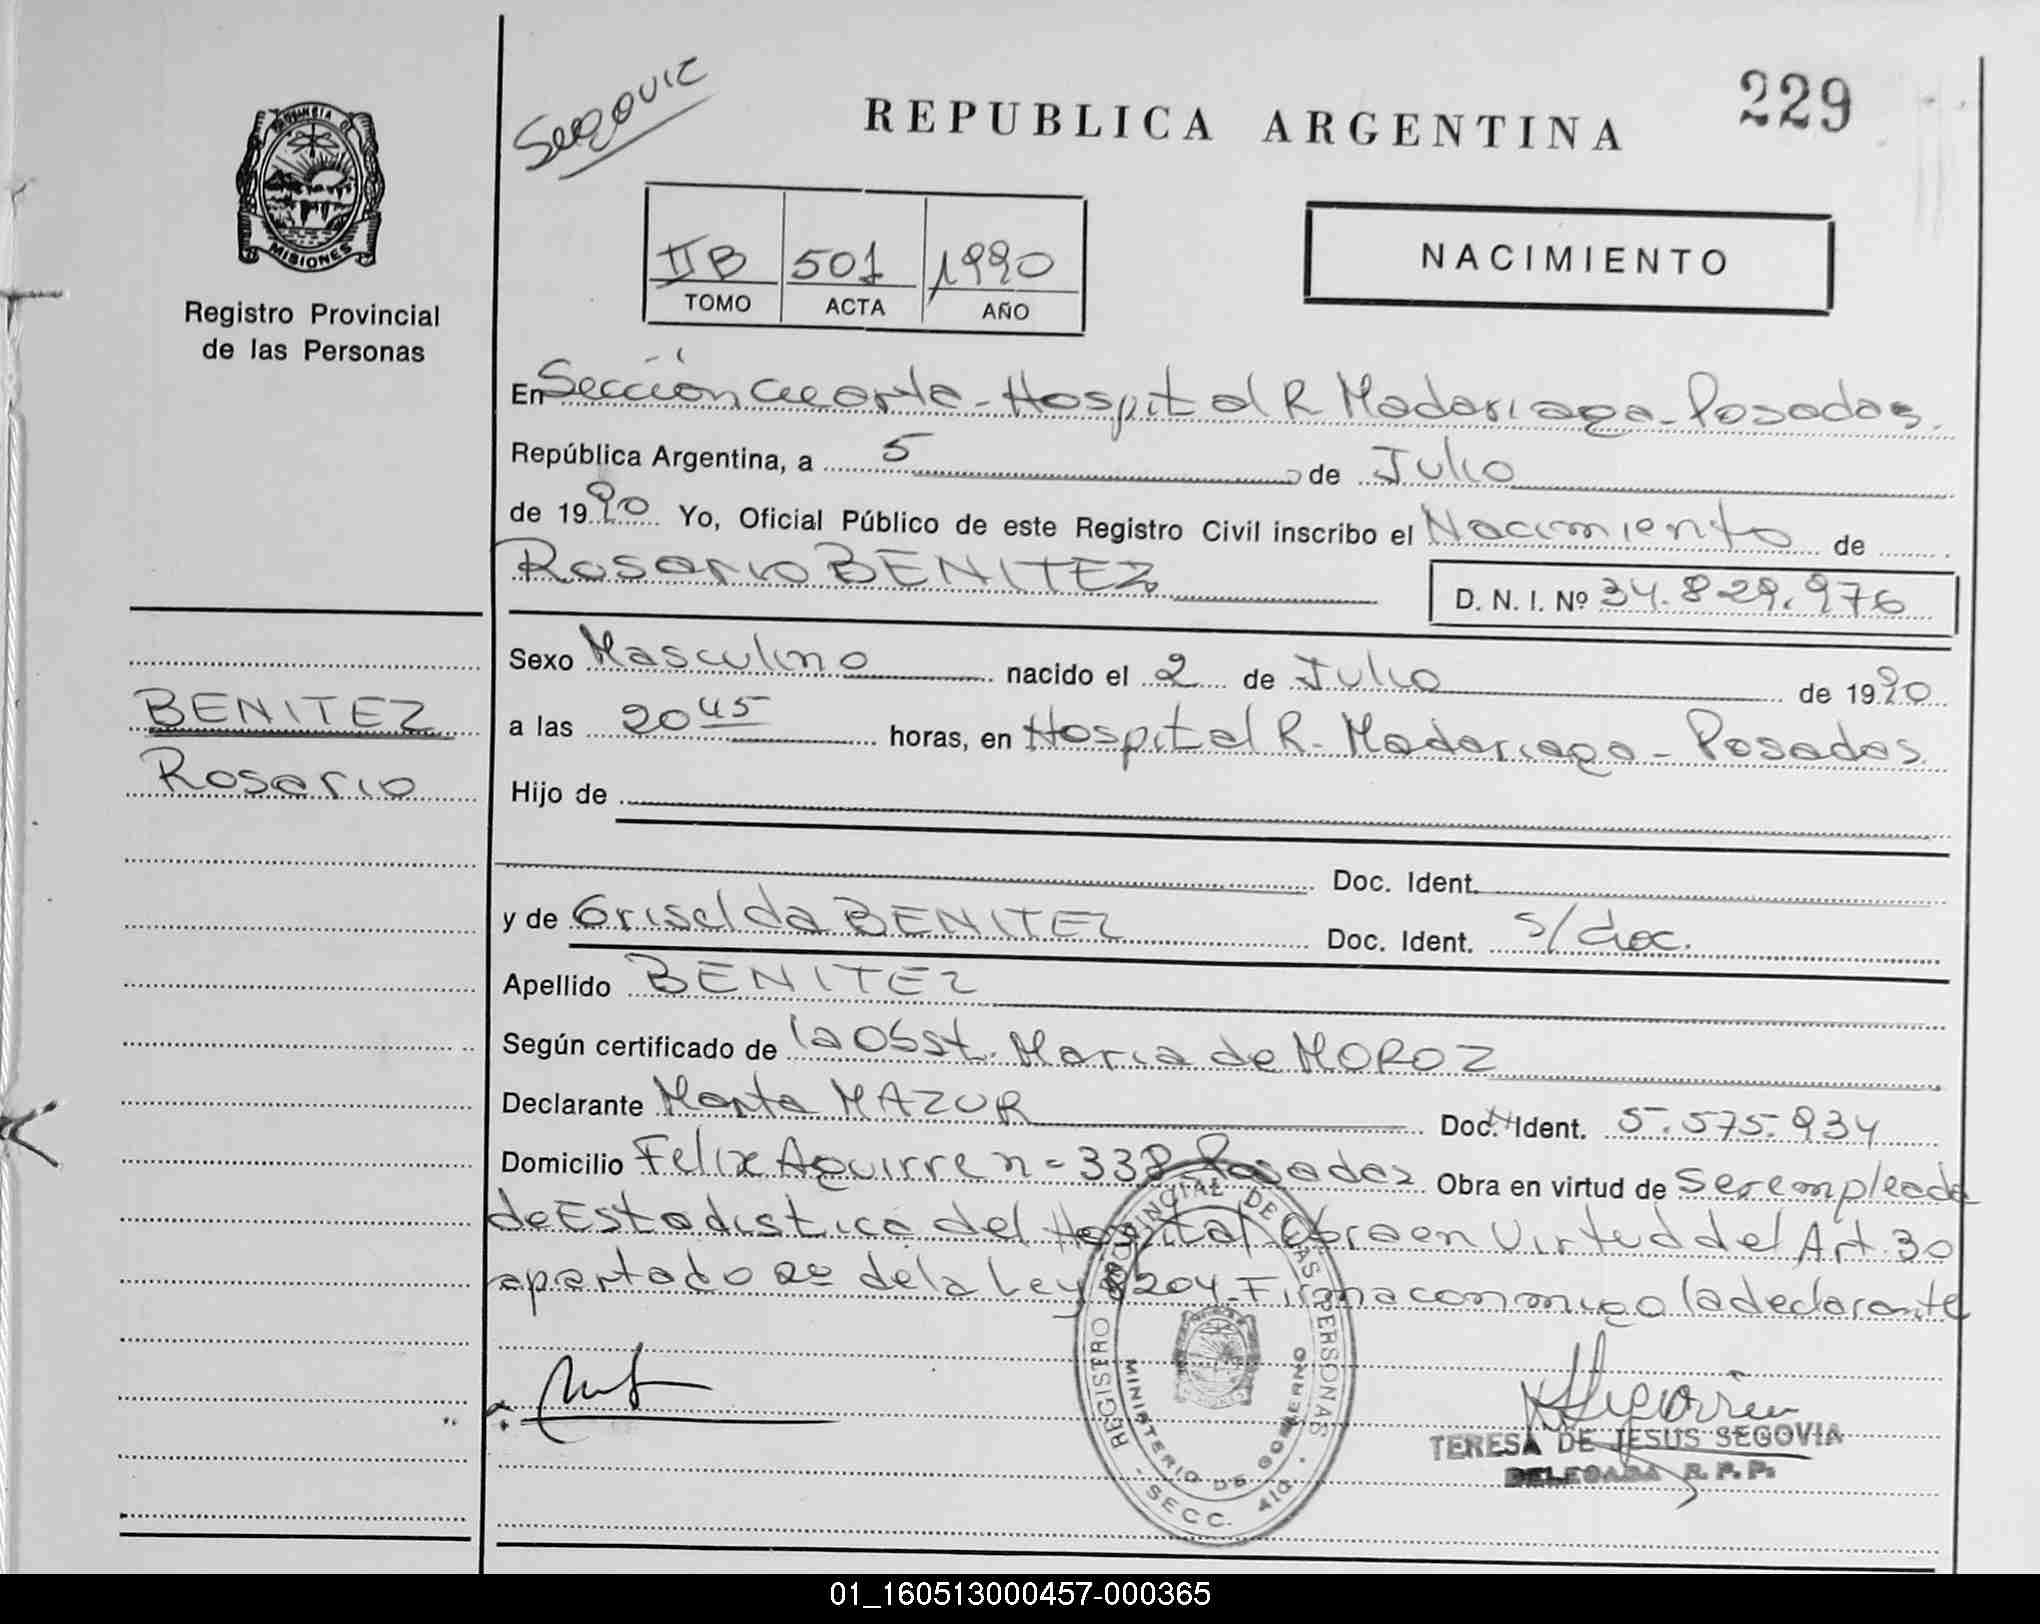 Segovia
REPUBLICA ARGENTINA
229
PROVINCIA D
MISIONES
Registro Provincial
de las Personas
II B 501 1990
TOMO ACTA AÑO
NACIMIENTO
En Sección Cuarta - Hospital R Madariaga - Posadas.
República Argentina, a 5 de Julio
de 1990 Yo, Oficial Público de este Registro Civil inscribo el Nacimiento de
Rosario BENITEZ
D. N. I. Nº 34.829.976
BENITEZ
Rosario
Sexo Masculino nacido el 2 de Julio de 1990
a las 20 45 horas, en Hospital R. Madariaga - Posadas.
Hijo de
Doc. Ident.
y de Griselda BENITEZ Doc. Ident. s/doc.
Apellido BENITEZ
Según certificado de la Obst. Maria de MOROZ
Declarante Marta MAZUR Doc. Ident. 5.575.934
Domicilio Felix Aguirre n= 338 Posadas Obra en virtud de Ser empleada
de Estadistica del Hospital Obra en Virtud del Art. 30
apartado 2º de la Ley 8204 - Firma conmigo la declarante
REGISTRO PROVINCIAL DE LAS PERSONAS
MINISTERIO DE GOBIERNO
- SECC. 4ta. -
TERESA DE JESUS SEGOVIA
DELEGADA R. P. P.
01_160513000457-000365